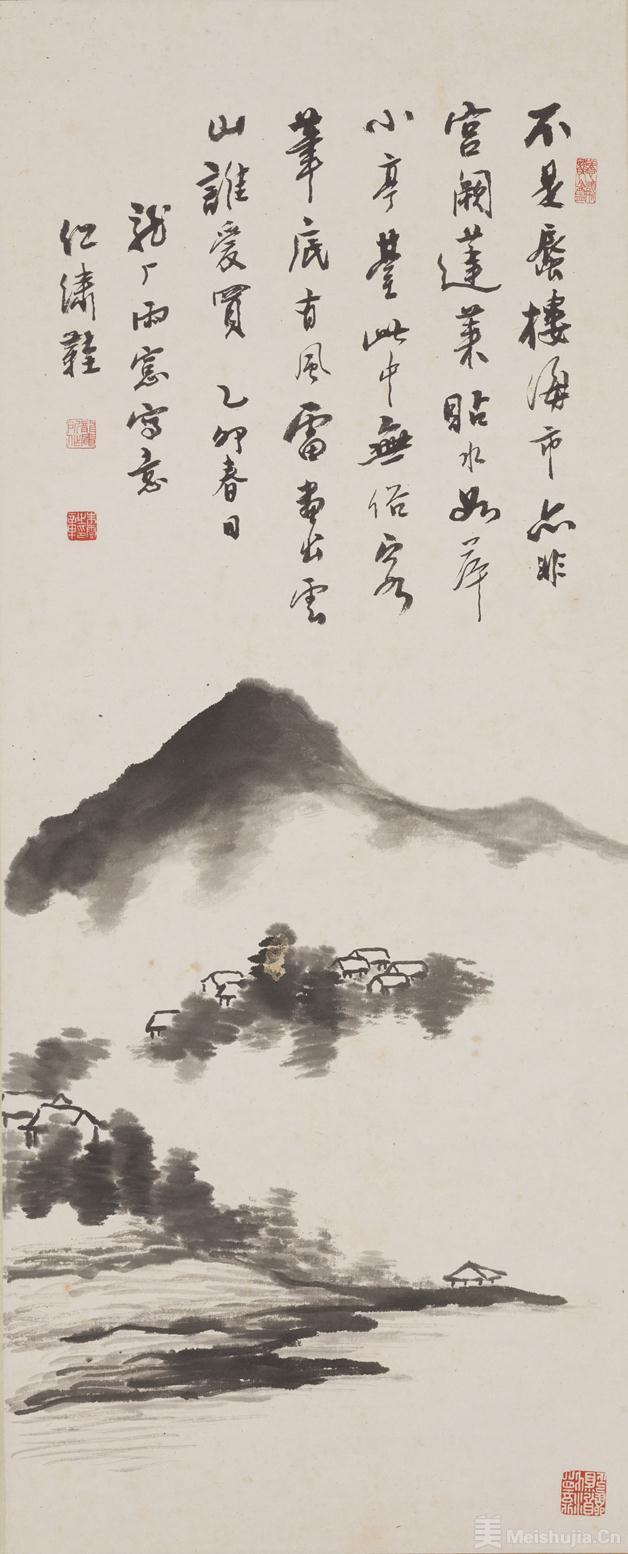 不是蜃樓海市亦非
宮闕蓬萊貼水如萍
小亭臺此中無俗客
筆底有風雷畫出雲
山誰愛買 乙卯春日
龍丁雨窓寫意
仁繡鞋
美 Meishujia.Cn